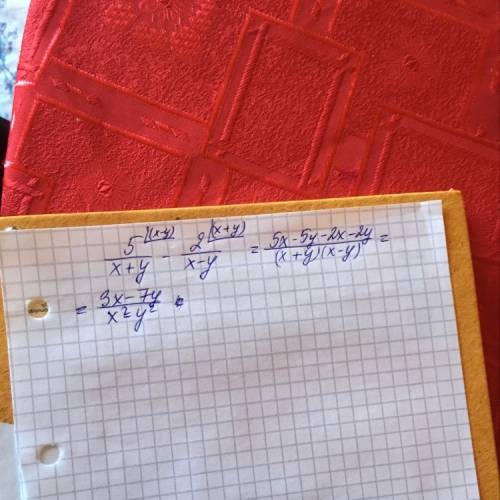 5^{/(x-y)}/(x+y) - 2^{/(x+y)}/(x-y) = (5x-5y-2x-2y)/((x+y)(x-y)) =
= (3x-7y)/(x²-y²)